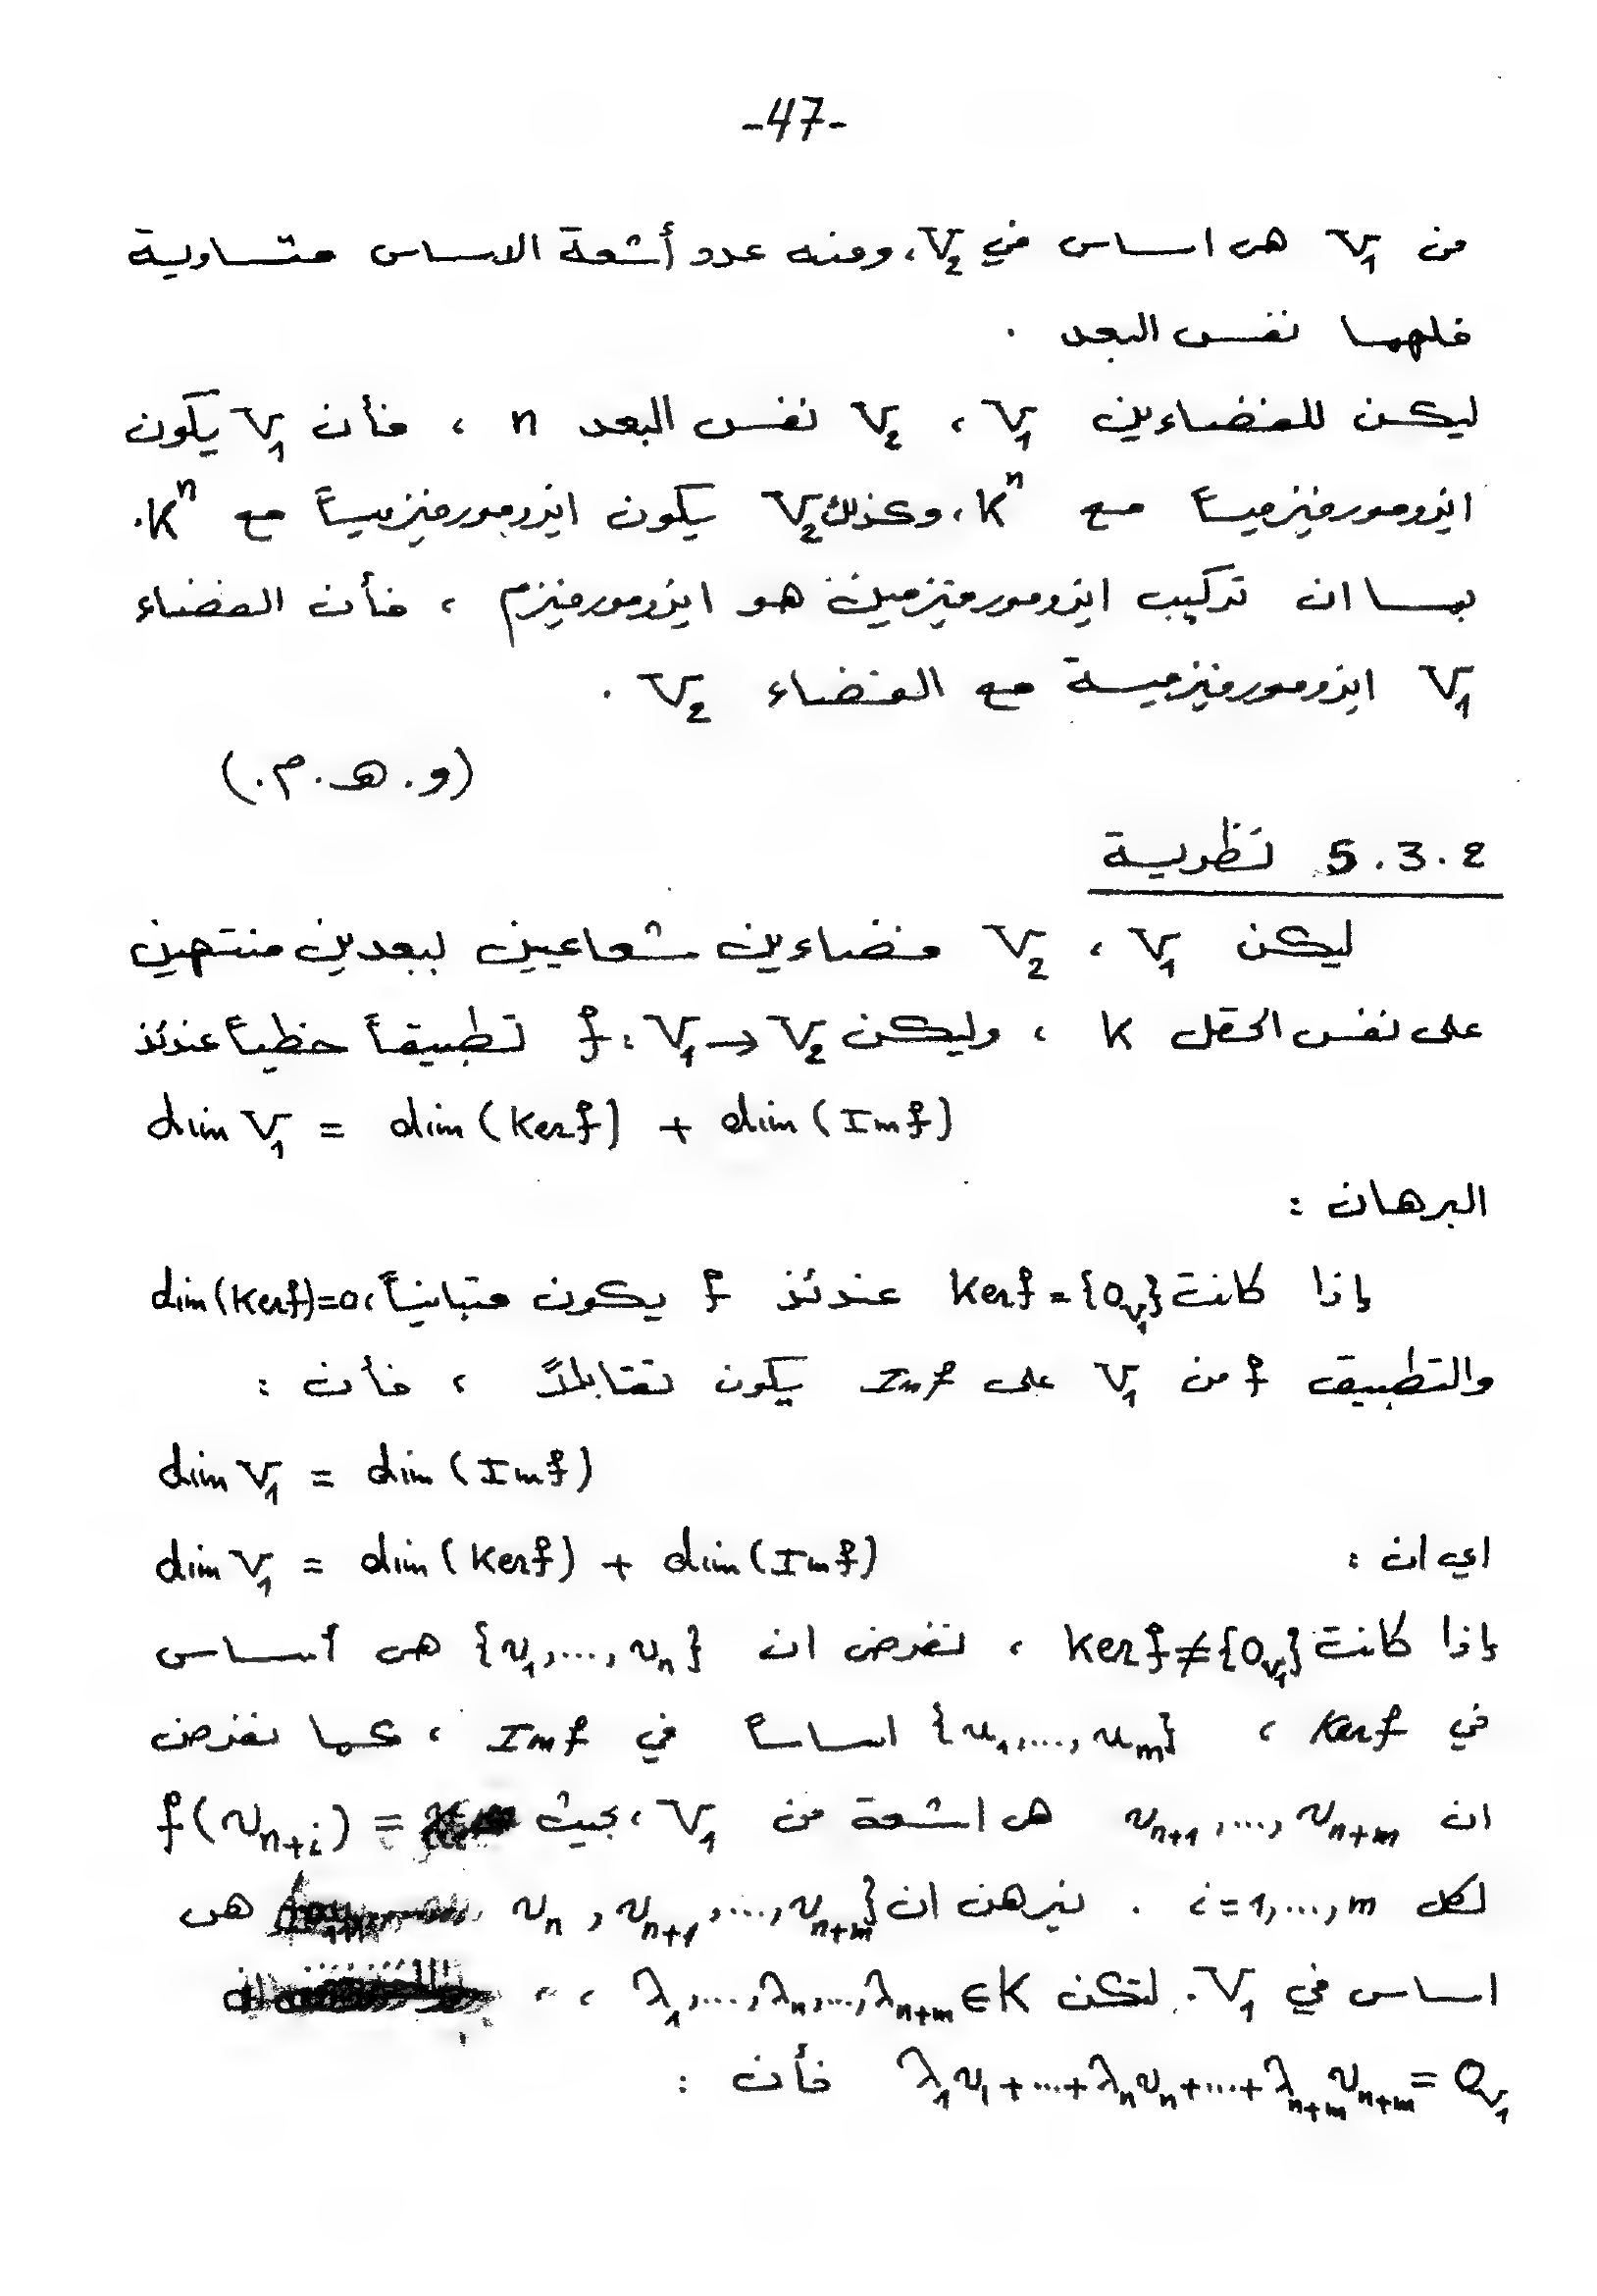 -47-
من V₁ هي اساس في V₂، ومنه عدد أشعة الاساس متساوية
فلهما نفس البعد .
ليكن للفضاءين V₁ ، V₂ نفس البعد n ، فأن V₁ يكون
ايزومورفيزمياً مع Kⁿ، وكذلك V₂ يكون ايزومورفيزمياً مع Kⁿ.
بما ان تركيب ايزومورفيزمين هو ايزومورفيزم ، فأن الفضاء
V₁ ايزومورفيزمية مع الفضاء V₂ .
(و. هـ. م.)
5.3.2 نظرية
ليكن V₁ ، V₂ فضاءين شعاعيين ببعدين منتهين
على نفس الحقل K ، وليكن f: V₁ → V₂ تطبيقاً خطياً عندئذ
dim V₁ = dim (Ker f) + dim (Im f)
البرهان :
إذا كانت Ker f = {0_V₁} عندئذ f يكون متبايناً، dim(Ker f)=0
والتطبيق f من V₁ على Im f يكون تقابلاً ، فأن :
dim V₁ = dim (Im f)
اي ان : dim V₁ = dim (Ker f) + dim (Im f)
إذا كانت Ker f ≠ {0_V₁} ، نفرض ان {v₁,...,vₙ} هي أساس
في Ker f ، {u₁,...,uₘ} اساساً في Im f ، كما نفرض
ان vₙ₊₁,...,vₙ₊ₘ هي اشعة من V₁، بحيث f(vₙ₊ᵢ) =
لكل i=1,...,m . نبرهن ان vₙ, vₙ₊₁,...,vₙ₊ₘ} هي
اساس في V₁. لتكن λ₁,...,λₙ,...,λₙ₊ₘ ∈ K ،
λ₁v₁+...+λₙvₙ+...+λₙ₊ₘvₙ₊ₘ = 0_V₁ فأن :